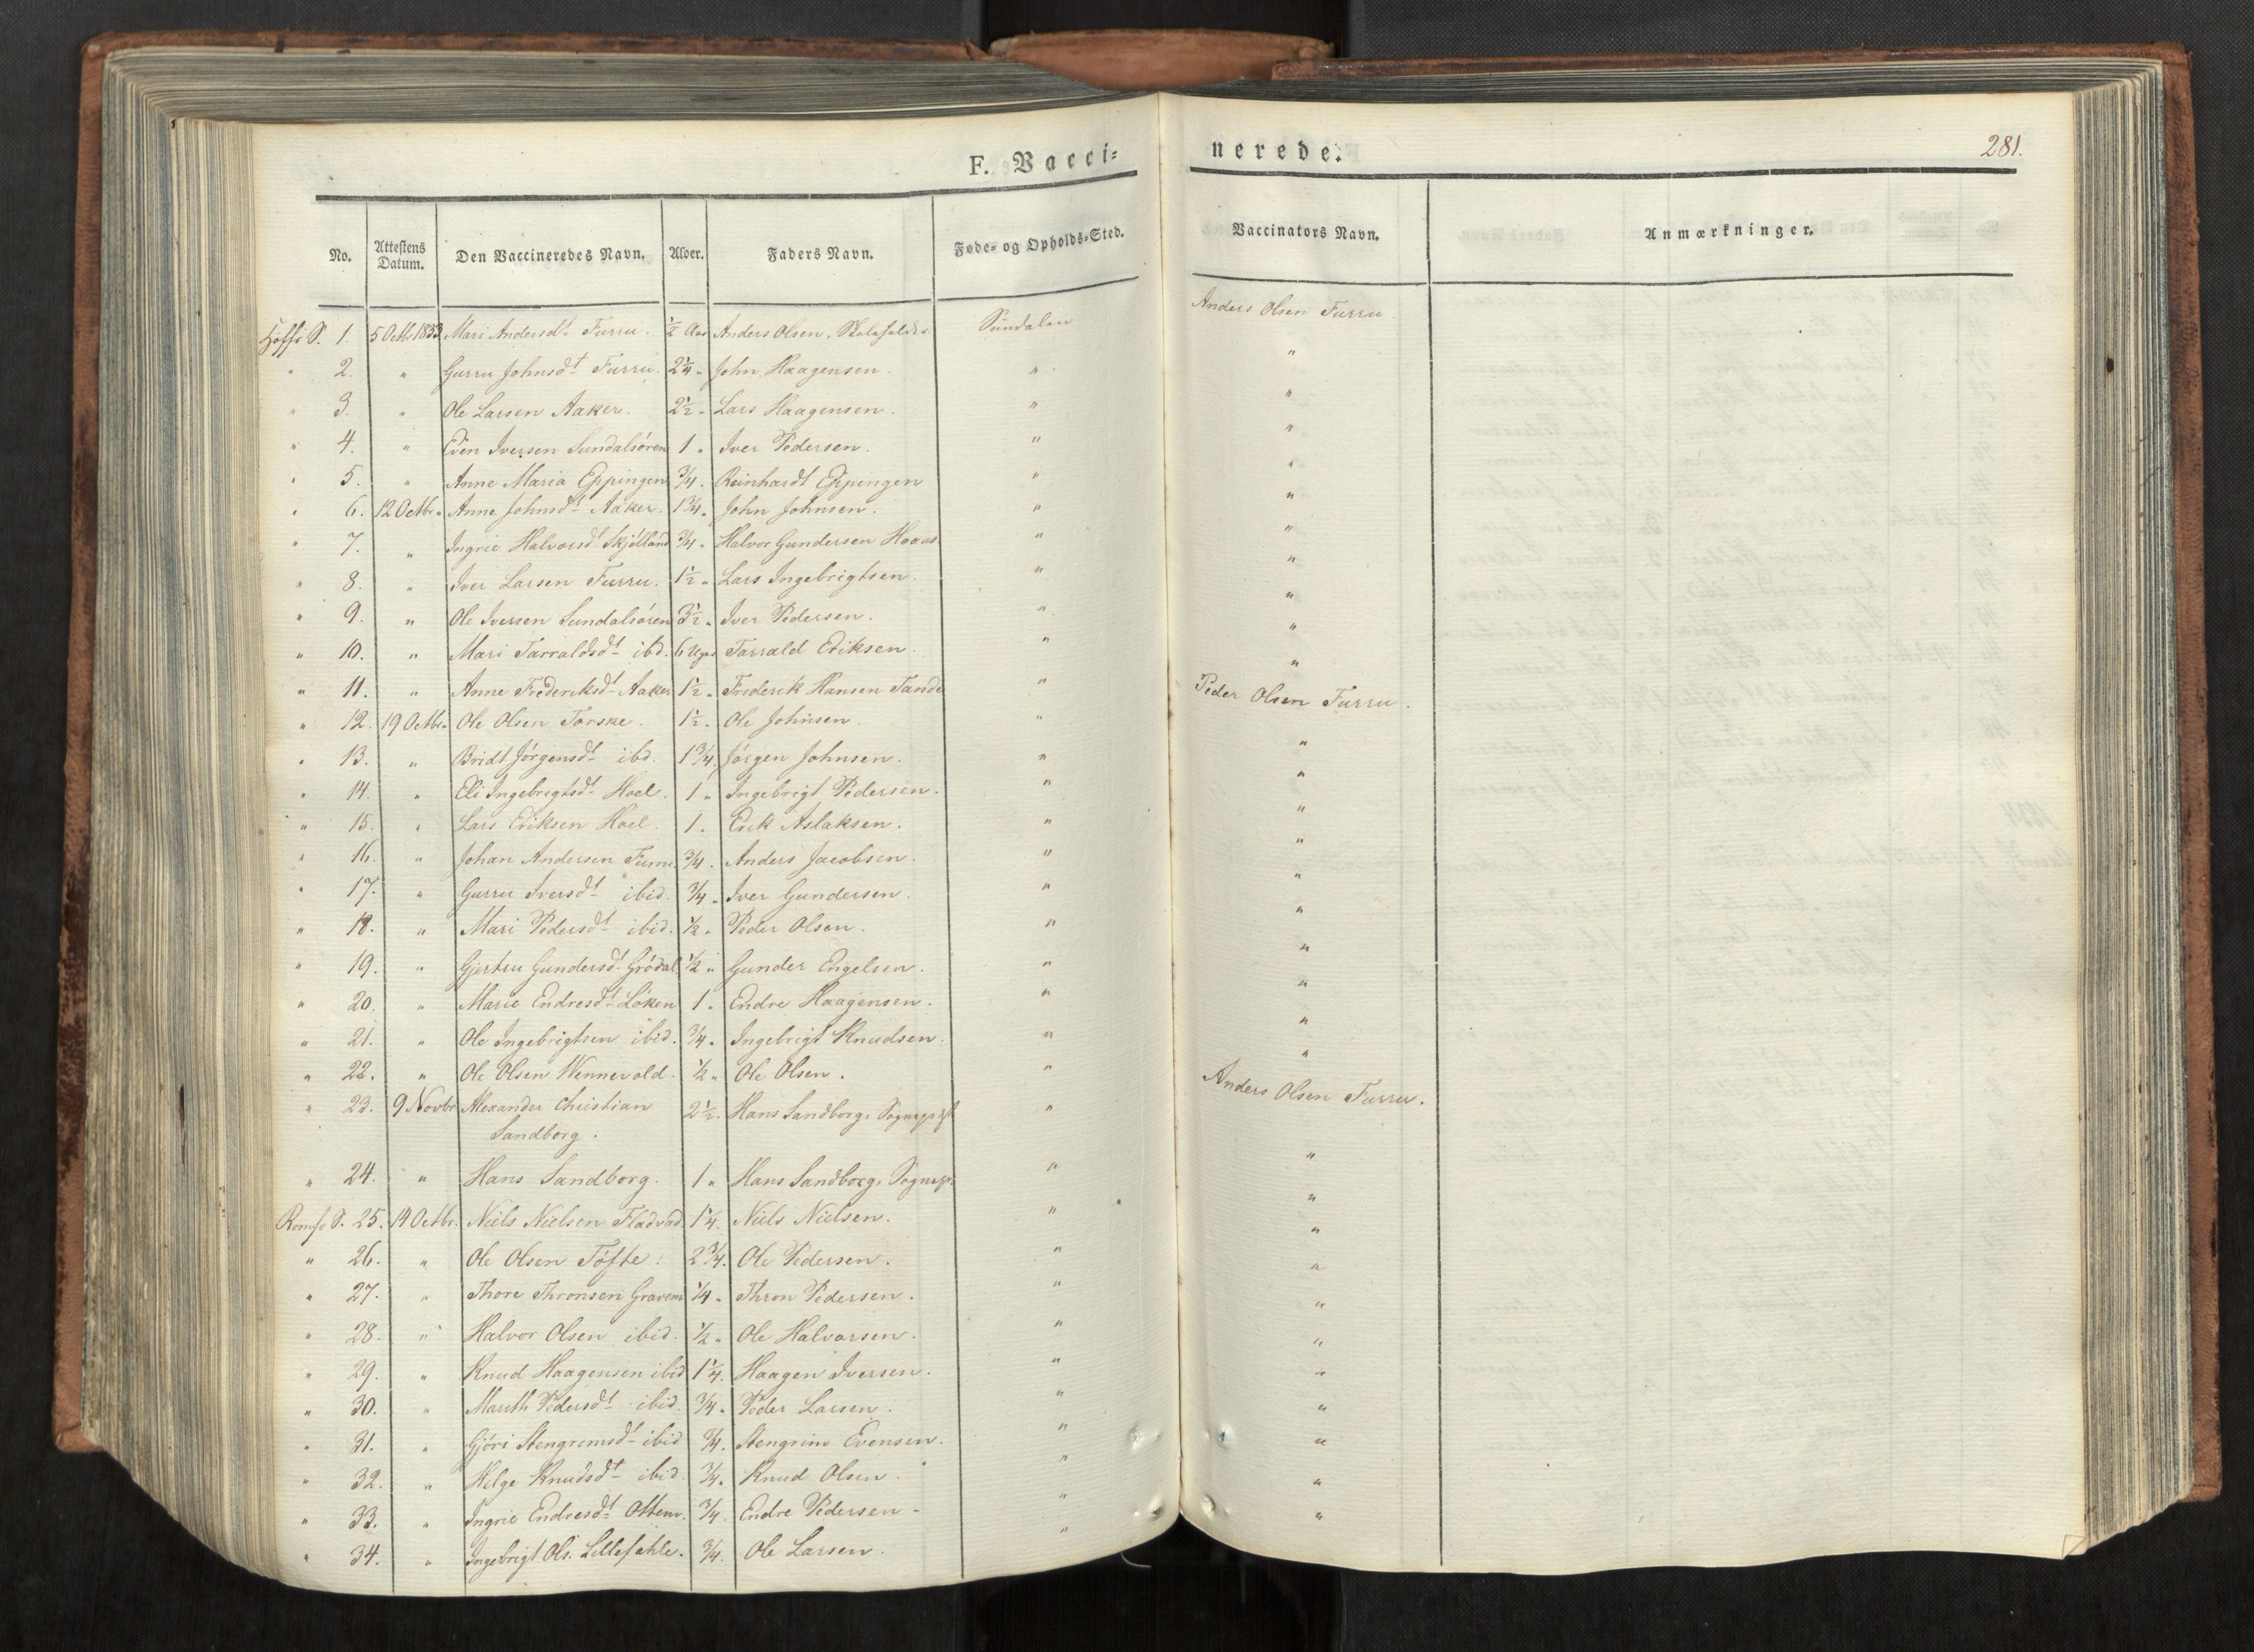 F. Vacci= nerede. 281.
No. Attestens Datum. Den Vaccineredes Navn. Alder. Faders Navn. Føde= og Opholds=Sted. Vaccinators Navn. Anmærkninger.
Hoffs S. 1. 5 Octbr 1833 Mari Andersdt Furru. ½ Aar Anders Olsen, Sundalen Anders Olsen Furru
" 2. " Gurru Johnsdt Furru. 2¼ " John Haagensen. " "
" 3. " Ole Larsen Aaker. 2½ " Lars Haagensen. " "
" 4. " Even Iversen Sundalsøren 1 " Iver Pedersen. " "
" 5. " Anne Maria Eppingen ¾. Reinhardt Eppingen " "
" 6. 12 Octbr. " Anne Johnsdt Aaker. 1¼ " John Johnsen. " "
" 7. " Ingrie Halvorsdt ¾ " Halvor Gundersen Hoaas. " "
" 8. " Iver Larsen Furru. 1½ " Lars Ingebrigtsen. " "
" 9. " Ole Iversen Sundalsøren 3½ " Iver Pedersen. " "
" 10. " Mari Tarraldsdt ibd. 6 Uger Tarrald Eriksen. " "
" 11. " Anne Frederiksdt Aaker 1½ " Frederik Hansen Tande " "
" 12. 19 Octbr. " Ole Olsen Torske. 1½. Ole Johnsen. " Peder Olsen Furru.
" 13. " Bridt Jørgensdt ibd. 1¾. Jørgen Johnsen. " "
" 14. " Eli Ingebrigtsdt Hoel. 1 " Ingebrigt Pedersen. " "
" 15. " Lars Eriksen Hoel. 1. Erik Aslaksen. " "
" 16. " Johan Andersen Furru. ¾. Anders Jacobsen. " "
" 17. " Gurru Iversdt ibid. ¾ " Iver Gundersen. " "
" 18. " Mari Pedersdt ibid. ½ " Peder Olsen. " "
" 19. " Gjertru Gundersdt Grödal ½ " Gunder Engelsen. " "
" 20. " Marie Endresdt Løken 1. Endre Haagensen. " "
" 21. " Ole Ingebrigtsen ibid. ¾ " Ingebrigt Knudsen. " "
" 22. " Ole Olsen Wennevold. ½ " Ole Olsen. " "
" 23. 9 Novbr Alexander Christian 2½. Hans Sandborg, " Anders Olsen Furru.
Sandborg.
" 24. " Hans Sandborg. 1 " Hans Sandborg, Sognepr. " "
Romfo S. 25. 19 Octbr. Niels Nielsen Fladvad 1¼. Niels Nielsen. " "
" 26. " Ole Olsen Tøfte. 2¾. Ole Pedersen. " "
" 27. " Thore Thronsen Gravem ¼ " Thron Pedersen. " "
" 28. " Halvor Olsen ibid. ½ " Ole Halvorsen. " "
" 29. " Knud Haagensen ibid 1¼. Haagen Iversen. " "
" 30. " Marith Pedersdt ibid. ¾ " Peder Larsen. " "
" 31. " Gjöri Stengrimsdt ibid ¾. Stengrim Evensen. " "
" 32. " Helge Knudsdt ibid. ¾. Knud Olsen. " "
" 33. " Ingrie Endresdt Ottem. ¾. Endre Pedersen " "
" 34. " Ingebrigt Ols. Lillefahle. ¾. Ole Larsen. " "